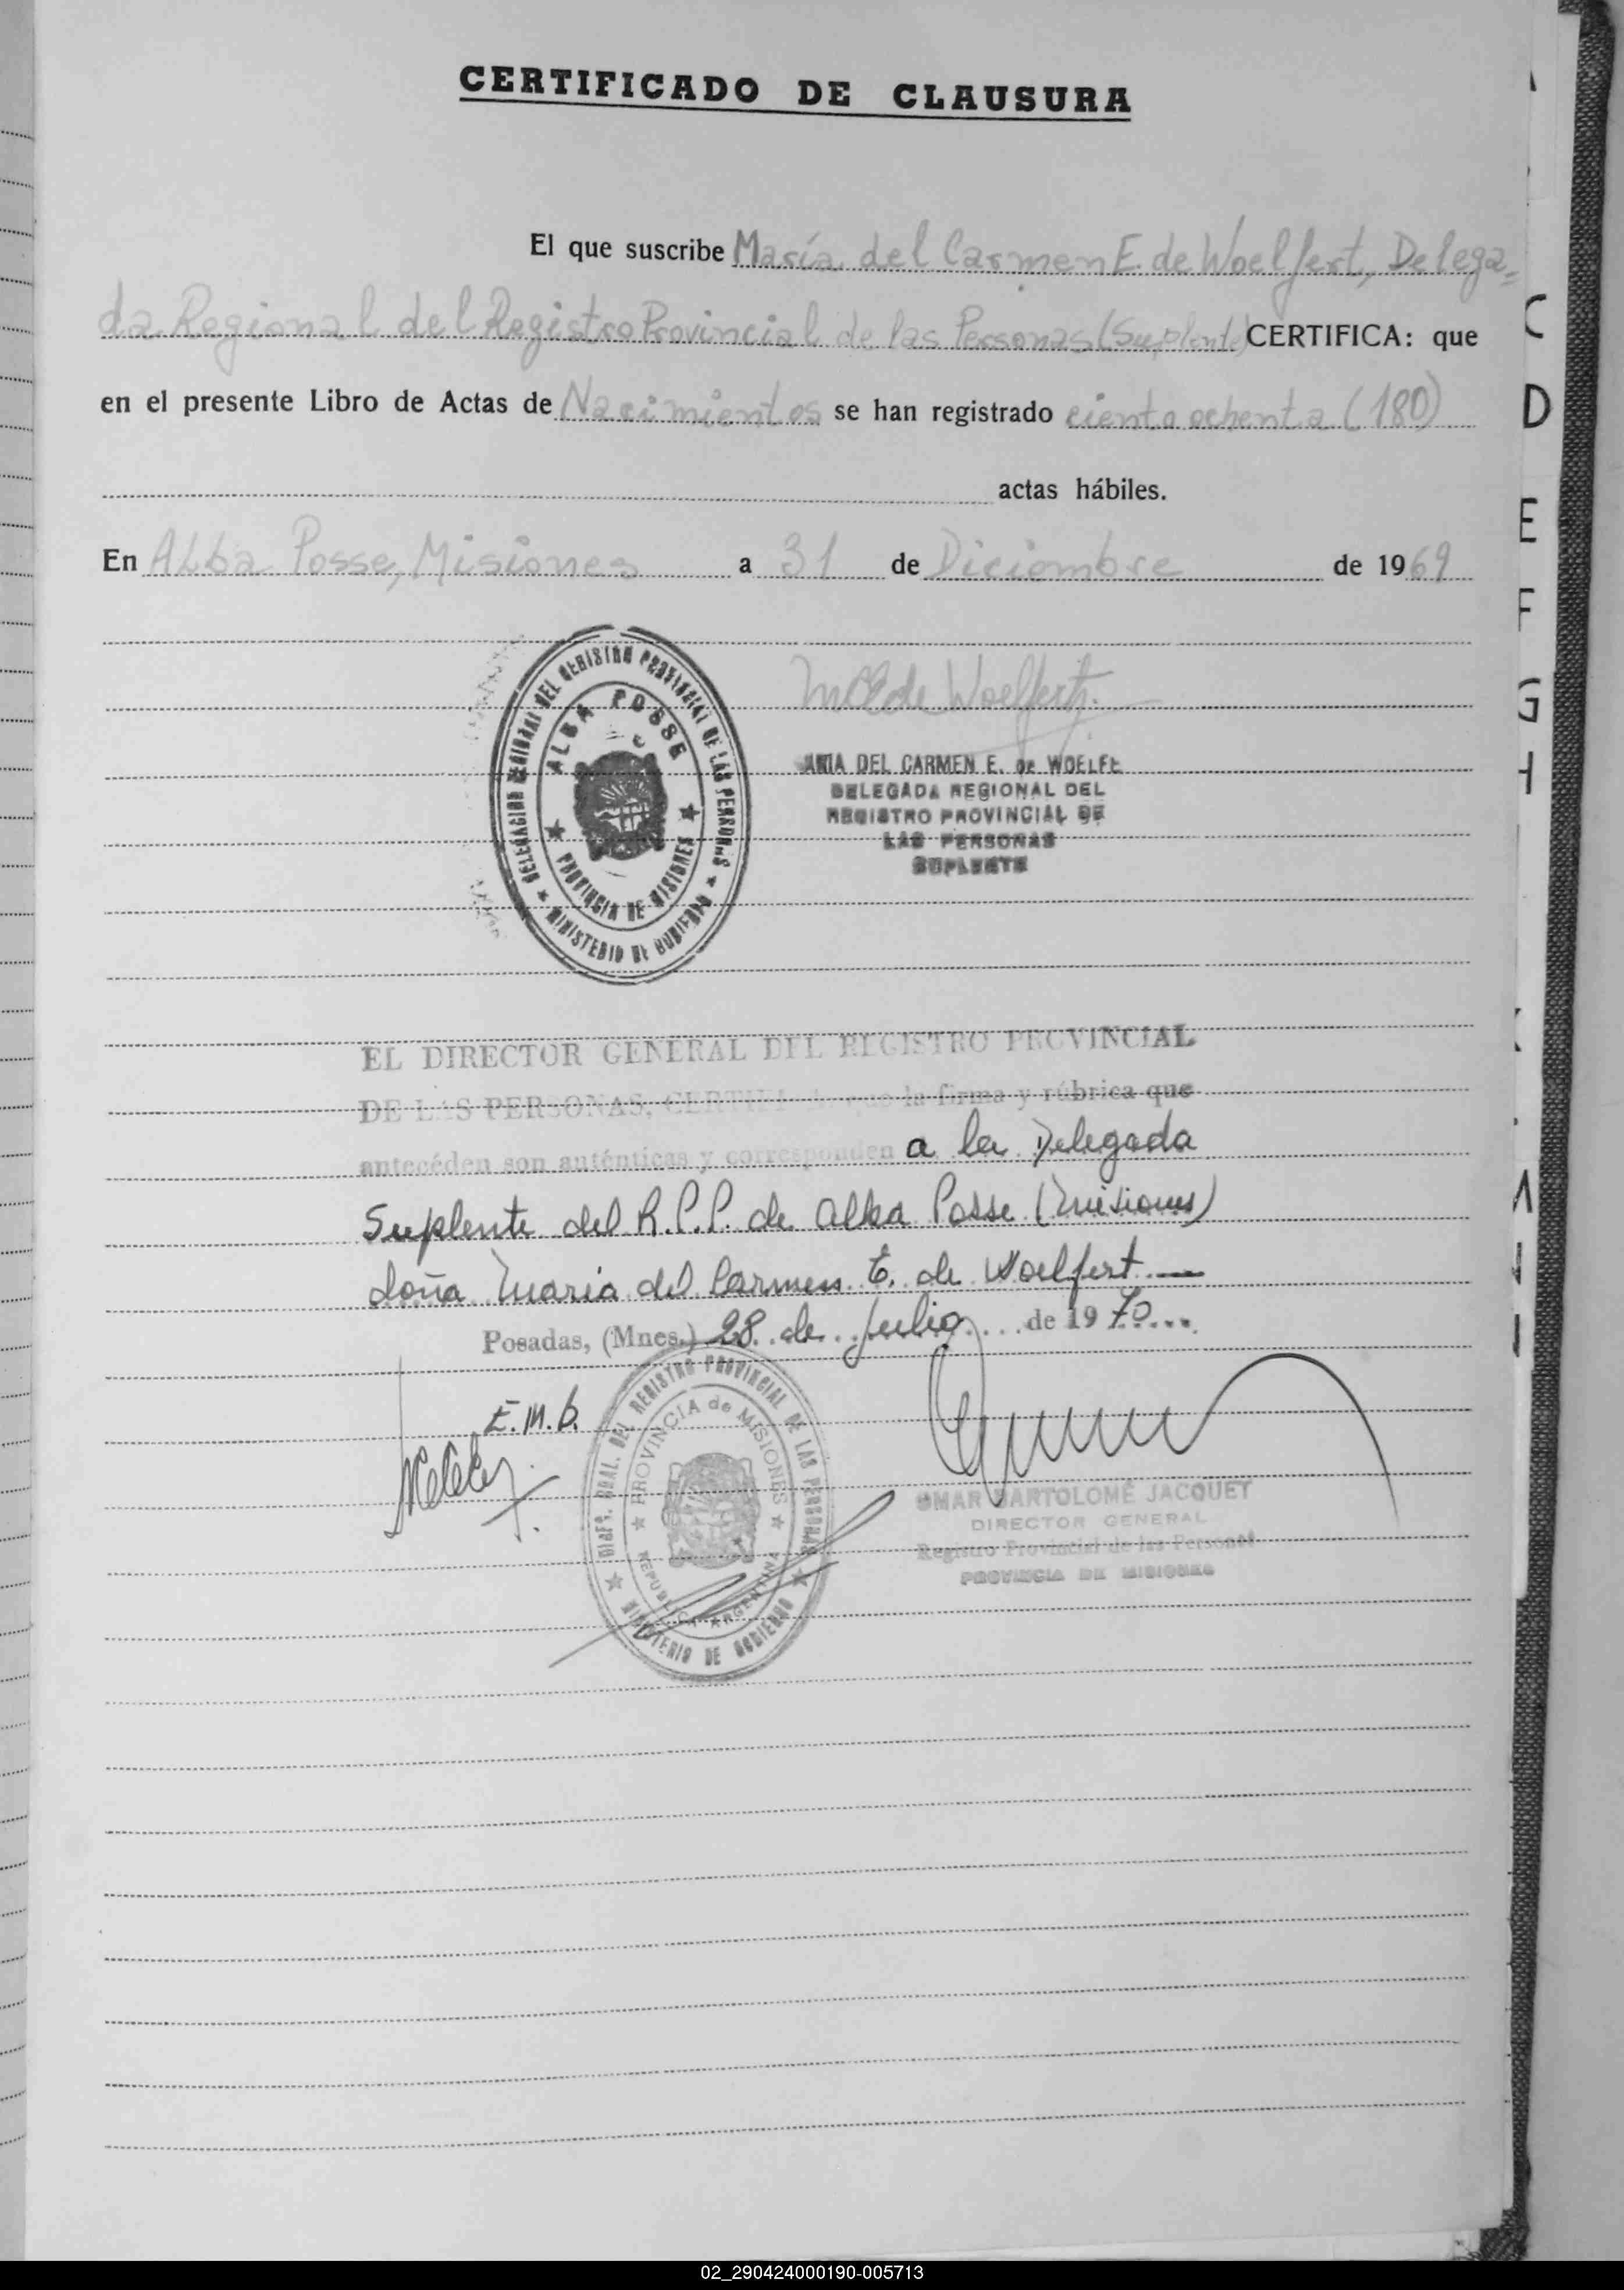 CERTIFICADO DE CLAUSURA
El que suscribe María del Carmen E. de Woelfert, Delega=
da Regional del Registro Provincial de las Personas (Suplente) CERTIFICA: que
en el presente Libro de Actas de Nacimientos se han registrado ciento ochenta (180)
actas hábiles.
En Alba Posse, Misiones a 31 de Diciembre de 1969
DELEGACION REGIONAL DEL REGISTRO PROVINCIAL DE LAS PERSONAS
MINISTERIO DE GOBIERNO
ALBA POSSE
PROVINCIA DE MISIONES
MCE de Woelfert.
ARIA DEL CARMEN E. de WOELFE
DELEGADA REGIONAL DEL
REGISTRO PROVINCIAL DE
LAS PERSONAS
SUPLENTE
EL DIRECTOR GENERAL DEL REGISTRO PROVINCIAL
DE LAS PERSONAS, CERTIFICA que la firma y rúbrica que
antecéden son auténticas y corresponden a la Delegada
Suplente del R.P.P. de Alba Posse (Misiones)
doña Maria del Carmen E. de Woelfert —
Posadas, (Mnes.) 28 de Julio de 1970
E.M.B.
DIREC. GRAL. DEL REGISTRO PROVINCIAL DE LAS PERSONAS
MINISTERIO DE GOBIERNO
PROVINCIA de MISIONES
REPUBLICA ARGENTINA
OMAR BARTOLOMÉ JACQUET
DIRECTOR GENERAL
Registro Provincial de las Personas
PROVINCIA DE MISIONES
C
D
E
F
G
H
02_290424000190-005713